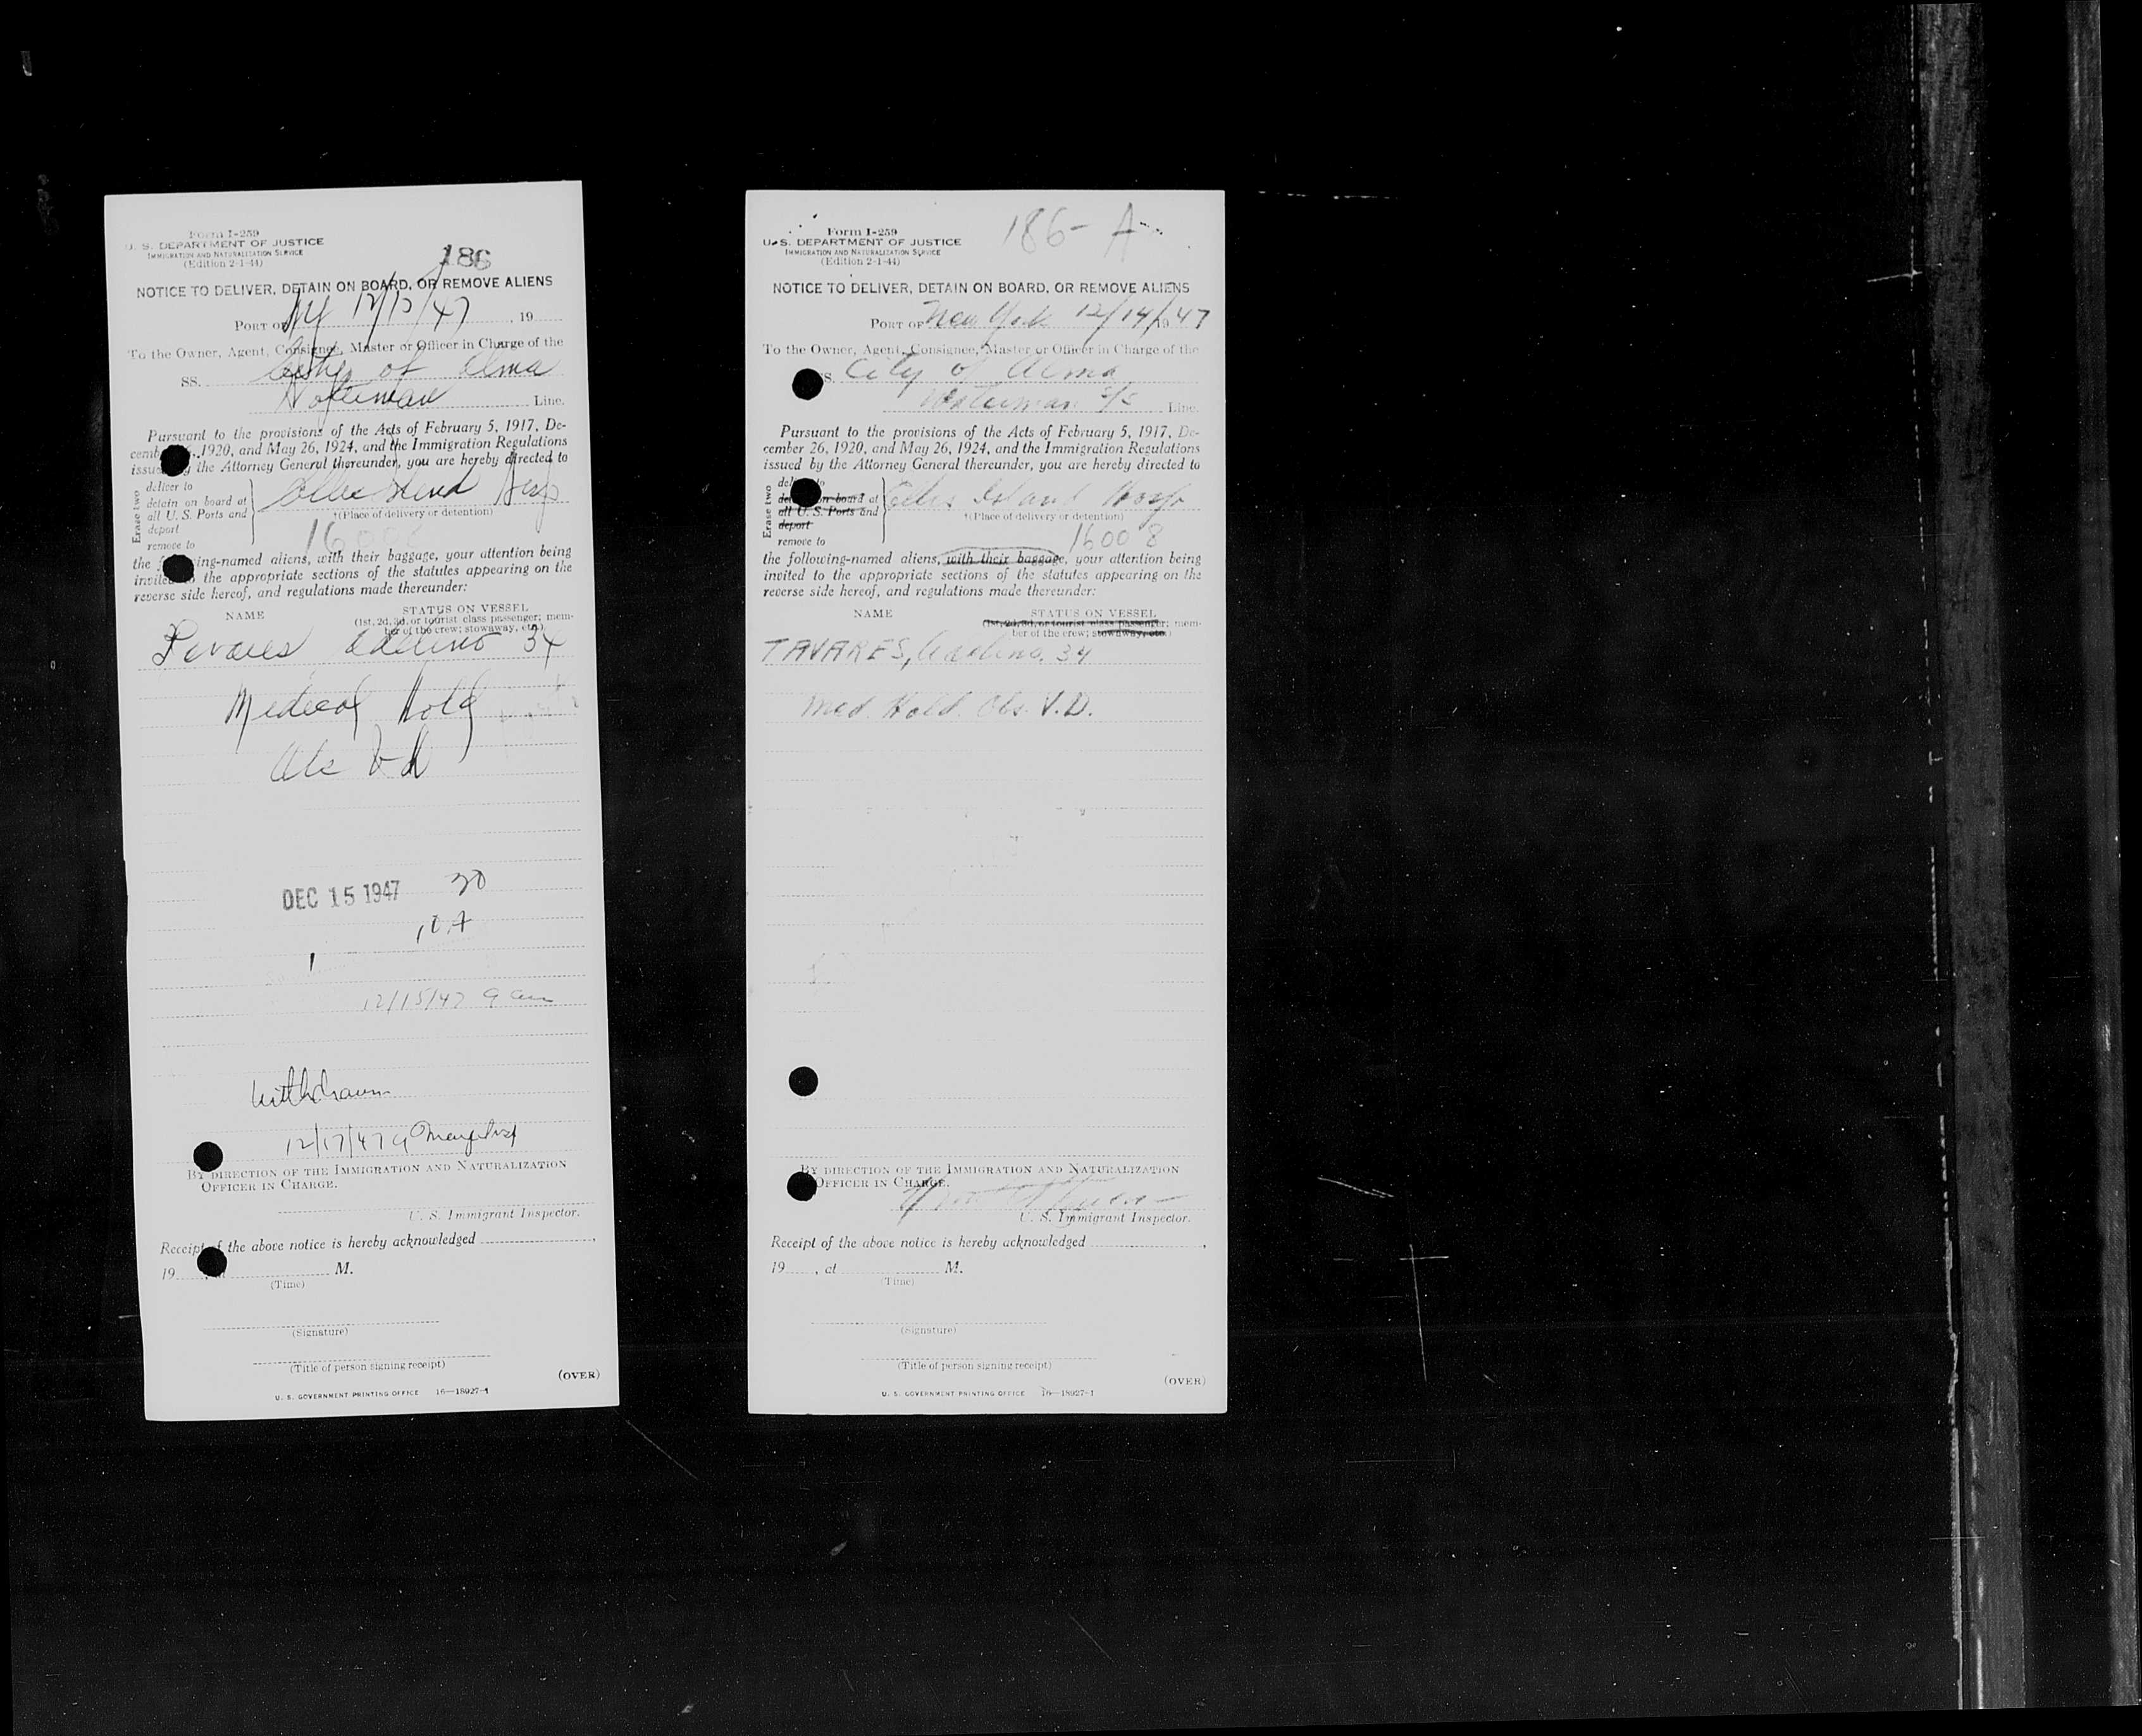 Form I-259
U. S. DEPARTMENT OF JUSTICE
IMMIGRATION AND NATURALIZATION SERVICE
(Edition 2-1-44)
186
NOTICE TO DELIVER, DETAIN ON BOARD, OR REMOVE ALIENS
PORT OF NY 12/13/47, 19
To the Owner, Agent, Consignee, Master or Officer in Charge of the
SS. of Alma
Line.
Pursuant to the provisions of the Acts of February 5, 1917, De-
1920, and May 26, 1924, and the Immigration Regulations
the Attorney General thereunder, you are hereby directed to
Erase two
deliver to
detain on board at
all U. S. Ports and
deport
remove to
Hosp
†(Place of delivery or detention)
16008
the ing-named aliens, with their baggage, your attention being
the appropriate sections of the statutes appearing on the
reverse side hereof, and regulations made thereunder:
NAME
STATUS ON VESSEL
(1st, 2d, 3d, or tourist class passenger; mem-
ber of the crew; stowaway, etc.)
Tavares 34
Medical Hold
DEC 15 1947 30
12/15/47 9 am
Withdrawn
12/17/47
BY DIRECTION OF THE IMMIGRATION AND NATURALIZATION
OFFICER IN CHARGE.
U. S. Immigrant Inspector.
Receipt of the above notice is hereby acknowledged
19 M.
(Time)
(Signature)
(Title of person signing receipt)
(OVER)
U. S. GOVERNMENT PRINTING OFFICE 16—18027-1
Form I-259
U. S. DEPARTMENT OF JUSTICE
IMMIGRATION AND NATURALIZATION SERVICE
(Edition 2-1-44)
186- A
NOTICE TO DELIVER, DETAIN ON BOARD, OR REMOVE ALIENS
PORT OF New York 12/14/1947
To the Owner, Agent, Consignee, Master or Officer in Charge of the
City of Alma
Waterman S/S Line.
Pursuant to the provisions of the Acts of February 5, 1917, De-
cember 26, 1920, and May 26, 1924, and the Immigration Regulations
issued by the Attorney General thereunder, you are hereby directed to
Erase two
deliver to
detain on board at
all U. S. Ports and
deport
remove to
Ellis Island Hosp
†(Place of delivery or detention)
16008
the following-named aliens, with their baggage, your attention being
invited to the appropriate sections of the statutes appearing on the
reverse side hereof, and regulations made thereunder:
NAME
STATUS ON VESSEL
(1st, 2d, 3d, or tourist class passenger; mem-
ber of the crew; stowaway, etc.)
TAVARES, Adelino. 34
Med. Hold. Obs. V.D.
BY DIRECTION OF THE IMMIGRATION AND NATURALIZATION
OFFICER IN CHARGE.
U. S. Immigrant Inspector.
Receipt of the above notice is hereby acknowledged
19 , at M.
(Time)
(Signature)
(Title of person signing receipt)
(OVER)
U. S. GOVERNMENT PRINTING OFFICE 16—18027-1